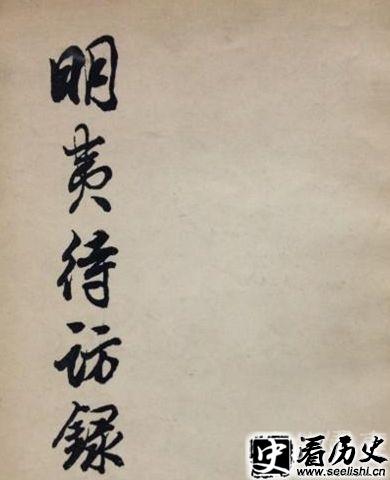 明夷待訪錄
史看历史
www.seelishi.cn